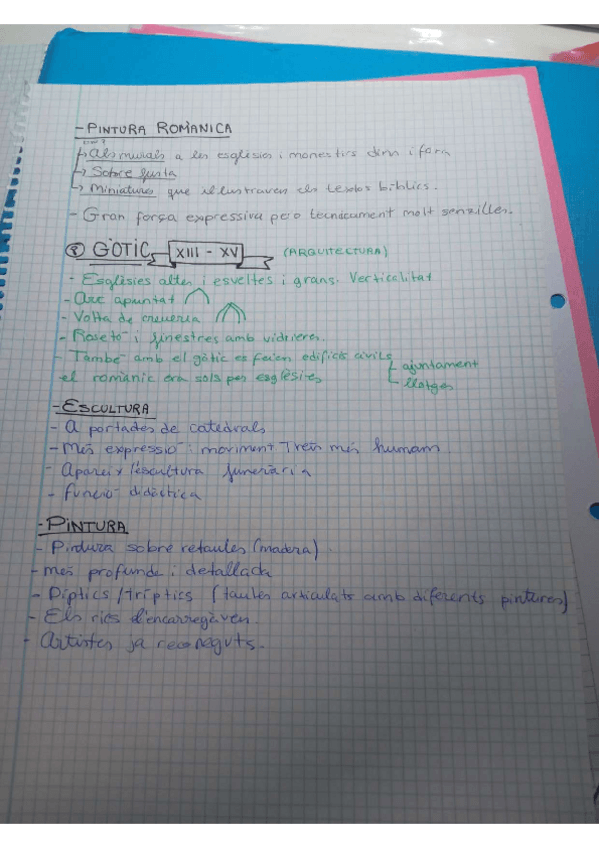 - PINTURA ROMANICA
ON?
↳ Als murals a les esglésies i monestirs dins i fora
↳ Sobre fusta
↳ Miniatures que il·lustraven els textos bíblics.
- Gran força expressiva pero tecnicament molt senzilles.
⑧ GÒTIC XIII - XV (ARQUITECTURA)
- Esglèsies altes i esveltes i grans. Verticalitat
- Arc apuntat
- Volta de creueria
- Rosetó i finestres amb vidrieres.
- També amb el gòtic es feien edificis civils ajuntament
el romànic era sols per esglèsies llotges
- ESCULTURA
- A portades de catedrals
- Més expressió: moviment Trets més humans
- Apareix l'escultura funerària
- Funció didàctica
- PINTURA
- Pintura sobre retaules (madera).
- més profunde i detallada
- Díptics / tríptics (taules articulats amb diferents pintures)
- Els rics l'encarregàven.
- Artistes ja reconeguts.